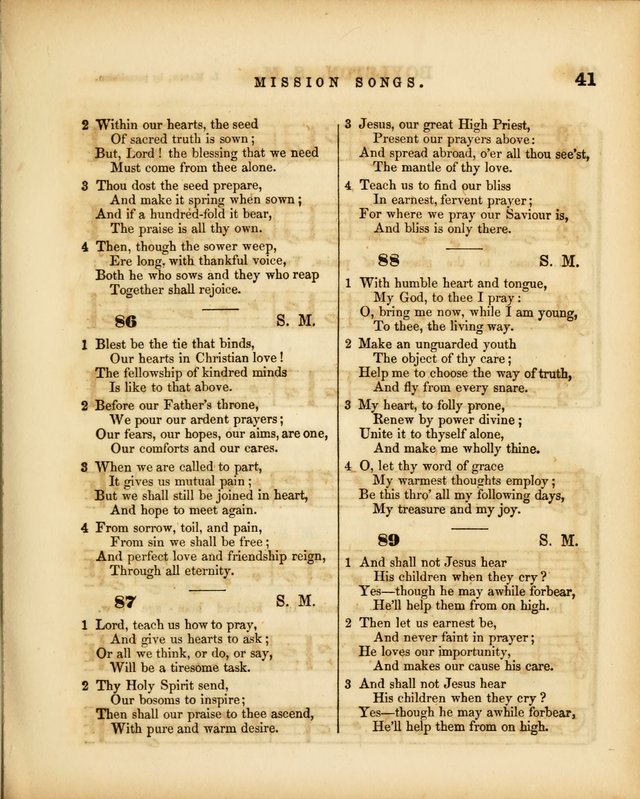 MISSION SONGS. 41
2 Within our hearts, the seed
Of sacred truth is sown;
But, Lord! the blessing that we need
Must come from thee alone.
3 Thou dost the seed prepare,
And make it spring when sown;
And if a hundred-fold it bear,
The praise is all thy own.
4 Then, though the sower weep,
Ere long, with thankful voice,
Both he who sows and they who reap
Together shall rejoice.
86 S. M.
1 Blest be the tie that binds,
Our hearts in Christian love!
The fellowship of kindred minds
Is like to that above.
2 Before our Father's throne,
We pour our ardent prayers;
Our fears, our hopes, our aims, are one,
Our comforts and our cares.
3 When we are called to part,
It gives us mutual pain;
But we shall still be joined in heart,
And hope to meet again.
4 From sorrow, toil, and pain,
From sin we shall be free;
And perfect love and friendship reign,
Through all eternity.
87 S. M.
1 Lord, teach us how to pray,
And give us hearts to ask;
Or all we think, or do, or say,
Will be a tiresome task.
2 Thy Holy Spirit send,
Our bosoms to inspire;
Then shall our praise to thee ascend,
With pure and warm desire.
3 Jesus, our great High Priest,
Present our prayers above:
And spread abroad, o'er all thou see'st,
The mantle of thy love.
4 Teach us to find our bliss
In earnest, fervent prayer;
For where we pray our Saviour is,
And bliss is only there.
88 S. M.
1 With humble heart and tongue,
My God, to thee I pray:
O, bring me now, while I am young,
To thee, the living way.
2 Make an unguarded youth
The object of thy care;
Help me to choose the way of truth,
And fly from every snare.
3 My heart, to folly prone,
Renew by power divine;
Unite it to thyself alone,
And make me wholly thine.
4 O, let thy word of grace
My warmest thoughts employ;
Be this thro' all my following days,
My treasure and my joy.
89 S. M.
1 And shall not Jesus hear
His children when they cry?
Yes—though he may awhile forbear,
He'll help them from on high.
2 Then let us earnest be,
And never faint in prayer;
He loves our importunity,
And makes our cause his care.
3 And shall not Jesus hear
His children when they cry?
Yes—though he may awhile forbear,
He'll help them from on high.